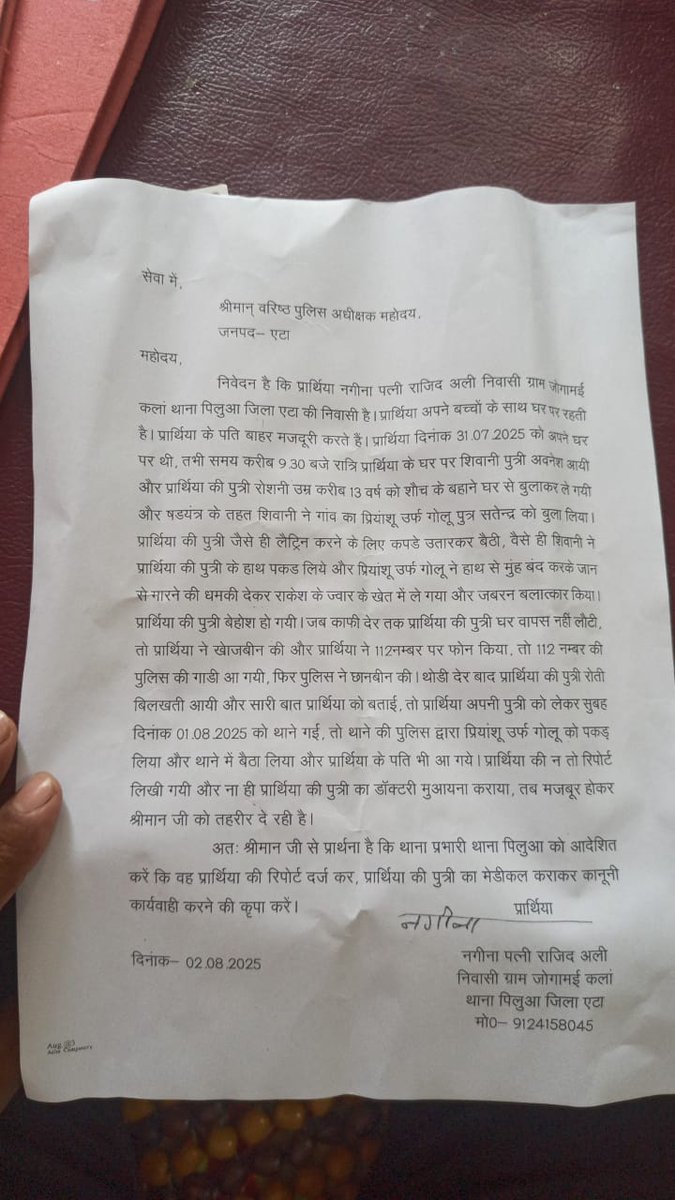 सेवा में,
श्रीमान् वरिष्ठ पुलिस अधीक्षक महोदय,
जनपद– एटा
महोदय,
निवेदन है कि प्रार्थिया नगीना पत्नी राजिद अली निवासी ग्राम जोगामई
कलां थाना पिलुआ जिला एटा की निवासी है। प्रार्थिया अपने बच्चों के साथ घर पर रहती
है। प्रार्थिया के पति बाहर मजदूरी करते हैं। प्रार्थिया दिनांक 31.07.2025 को अपने घर
पर थी, तभी समय करीब 9.30 बजे रात्रि प्रार्थिया के घर पर शिवानी पुत्री अवनेश आयी
और प्रार्थिया की पुत्री रोशनी उम्र करीब 13 वर्ष को शौच के बहाने घर से बुलाकर ले गयी
और षडयंत्र के तहत शिवानी ने गांव का प्रियांशू उर्फ गोलू पुत्र सतेन्द्र को बुला लिया।
प्रार्थिया की पुत्री जैसे ही लैट्रिन करने के लिए कपडे उतारकर बैठी, वैसे ही शिवानी ने
प्रार्थिया की पुत्री के हाथ पकड लिये और प्रियांशू उर्फ गोलू ने हाथ से मुंह बंद करके जान
से मारने की धमकी देकर राकेश के ज्वार के खेत में ले गया और जबरन बलात्कार किया।
प्रार्थिया की पुत्री बेहोश हो गयी। जब काफी देर तक प्रार्थिया की पुत्री घर वापस नहीं लौटी,
तो प्रार्थिया ने खोजबीन की और प्रार्थिया ने 112नम्बर पर फोन किया, तो 112 नम्बर की
पुलिस की गाडी आ गयी, फिर पुलिस ने छानबीन की। थोडी देर बाद प्रार्थिया की पुत्री रोती
बिलखती आयी और सारी बात प्रार्थिया को बताई, तो प्रार्थिया अपनी पुत्री को लेकर सुबह
दिनांक 01.08.2025 को थाने गई, तो थाने की पुलिस द्वारा प्रियांशू उर्फ गोलू को पकड़
लिया और थाने में बैठा लिया और प्रार्थिया के पति भी आ गये। प्रार्थिया की न तो रिपोर्ट
लिखी गयी और ना ही प्रार्थिया की पुत्री का डॉक्टरी मुआयना कराया, तब मजबूर होकर
श्रीमान जी को तहरीर दे रही है।
अतः श्रीमान जी से प्रार्थना है कि थाना प्रभारी थाना पिलुआ को आदेशित
करें कि वह प्रार्थिया की रिपोर्ट दर्ज कर, प्रार्थिया की पुत्री का मेडीकल कराकर कानूनी
कार्यवाही करने की कृपा करें।
प्रार्थिया
नगीना
दिनांक– 02.08.2025
नगीना पत्नी राजिद अली
निवासी ग्राम जोगामई कलां
थाना पिलुआ जिला एटा
मो0– 9124158045
Computers